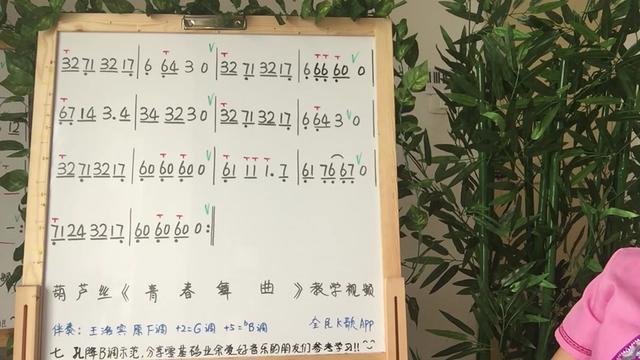 3271 3217 | 6 64 3 0 | 3271 3217 | 6 66 60 0
67 14 3.4 | 34 32 3 0 | 3271 3217 | 6 64 3 0
3271 3217 | 60 60 60 0 | 61 11 1.7 | 61 76 67 0
7124 3217 | 60 60 60 0 :||
葫芦丝《青春舞曲》教学视频
伴奏：王洛宾 原F调 +2=G调 +5=ᵇB调 全民K歌APP
七孔降B调示范，分享零基础业余爱好音乐的朋友们参考学习!!